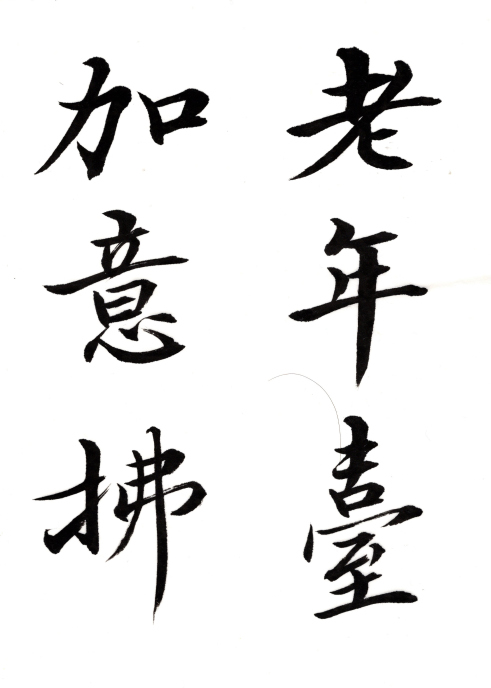 老年臺
加意拂